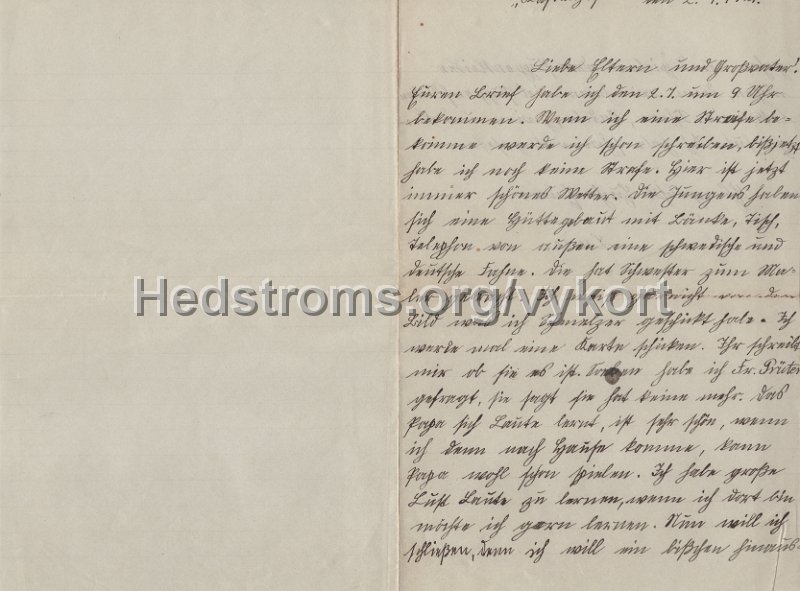 den 2. 7.
Liebe Eltern und Großvater!
Euren Brief habe ich den 2.7. um 9 Uhr
bekommen. Wenn ich eine Strafe be-
komme werde ich schon schreiben, bißjetzt
habe ich noch keine Strafe. Hier ist jetzt
immer schönes Wetter. Die Jungens haben
sich eine Hütte gebaut mit Bänke, Tisch,
Telephon von außen eine schwedische und
deutsche Fahne. Die hat Schwester zum Ma-
Hedstroms.org/vykort
Bild was ich Schmelzer geschickt habe. Ich
werde mal eine Karte schicken. Ihr schreibt
mir ob sie es ist. Soeben habe ich Fr. Prüter
gefragt, sie sagt sie hat keine mehr. Das
Papa sich Laute lernt, ist sehr schön, wenn
ich denn nach Hause komme, kann
Papa wohl schon spielen. Ich habe große
Lust Laute zu lernen, wenn ich dort bin
möchte ich gern lernen. Nun will ich
schließen, denn ich will ein bißchen hinaus-